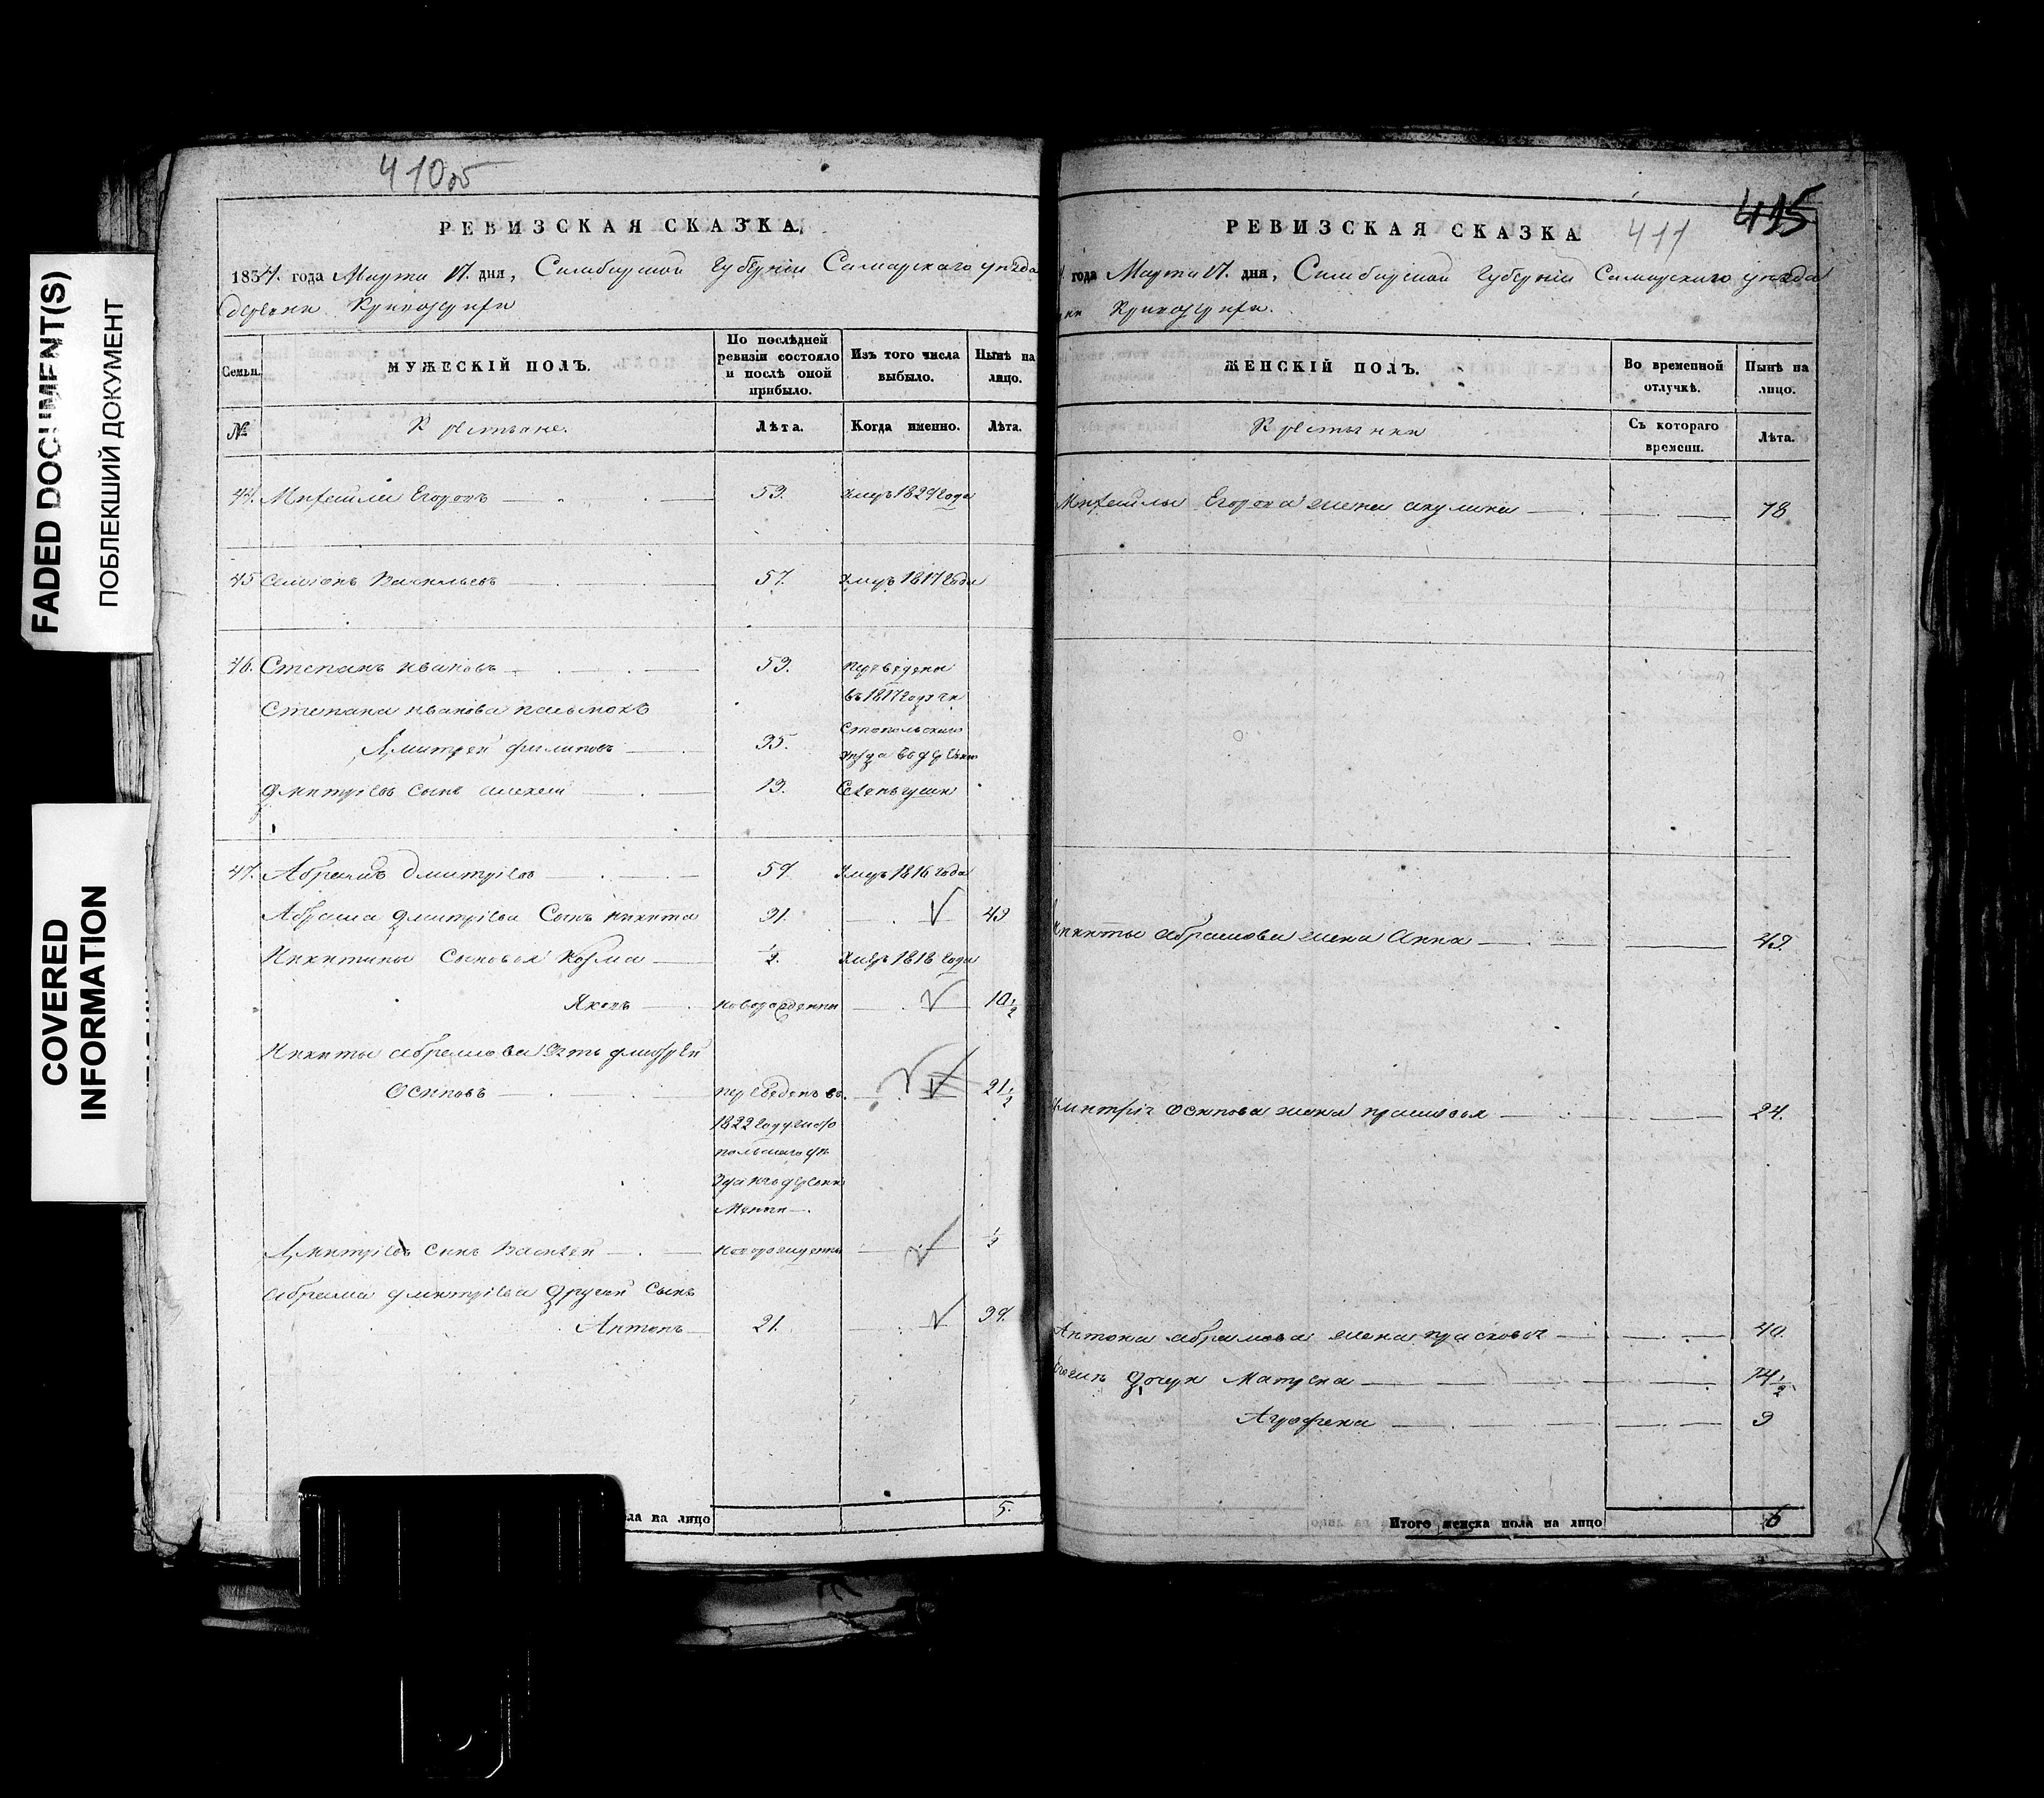 FADED DOCUMENT(S)
ПОБЛЕКШИЙ ДОКУМЕНТ
COVERED
INFORMATION
410об
РЕВИЗСКАЯ СКАЗКА,
1834. года Марта 17. дня, Симбирской Губерніи Самарскаго уезда
деревни
Семьи.
МУЖЕСКІЙ ПОЛЪ.
По послѣдней ревизіи состояло и послѣ оной прибыло.
Изъ того числа выбыло.
Нынѣ на лицо.
№
Крестьяне.
Лѣта.
Когда именно.
Лѣта.
44. Михайла Егоровъ 53. умеръ 1829 года
45 Семіонъ Васильевъ 57. умеръ 1817 года
46. Степанъ Ивановъ 53. переведены
Степана Иванова въ 1817 году
Дмитрей Филиповъ 35.
Дмитріевъ сынъ Алексей 13.
47. Абрамъ Дмитріевъ 59. умеръ 1816 года
Абрама Дмитріева Сынъ Никита 31. 49
Никитины Сыновья Козма ½. умеръ 1818 года
Яковъ новорожденны 10½
Никиты Абрамова зять Дмитрей
Осиповъ переведенъ во 21½
1822 году
польскаго уѣ
зда изъ деревни
Дмитріевъ сынъ Василей новорожденны ½
Абрама Дмитріева другой сынъ
Антонъ 21. 39.
ла на лицо 5.
РЕВИЗСКАЯ СКАЗКА
411
415
года Марта 17. дня, Симбирской Губерніи Самарскаго уезда
ЖЕНСКІЙ ПОЛЪ.
Во временной отлучкѣ.
Нынѣ на лицо.
Крестьянки
Съ котораго времени.
Лѣта.
Михайлы Егорова жена Акулина 78
Никиты Абрамова жена Анна 49.
Дмитрія Осипова жена Прасковья 24.
Антона Абрамова жена Прасковья 40.
дочери Матрена 14½
Агрофена 9
Итого женска пола на лицо 6